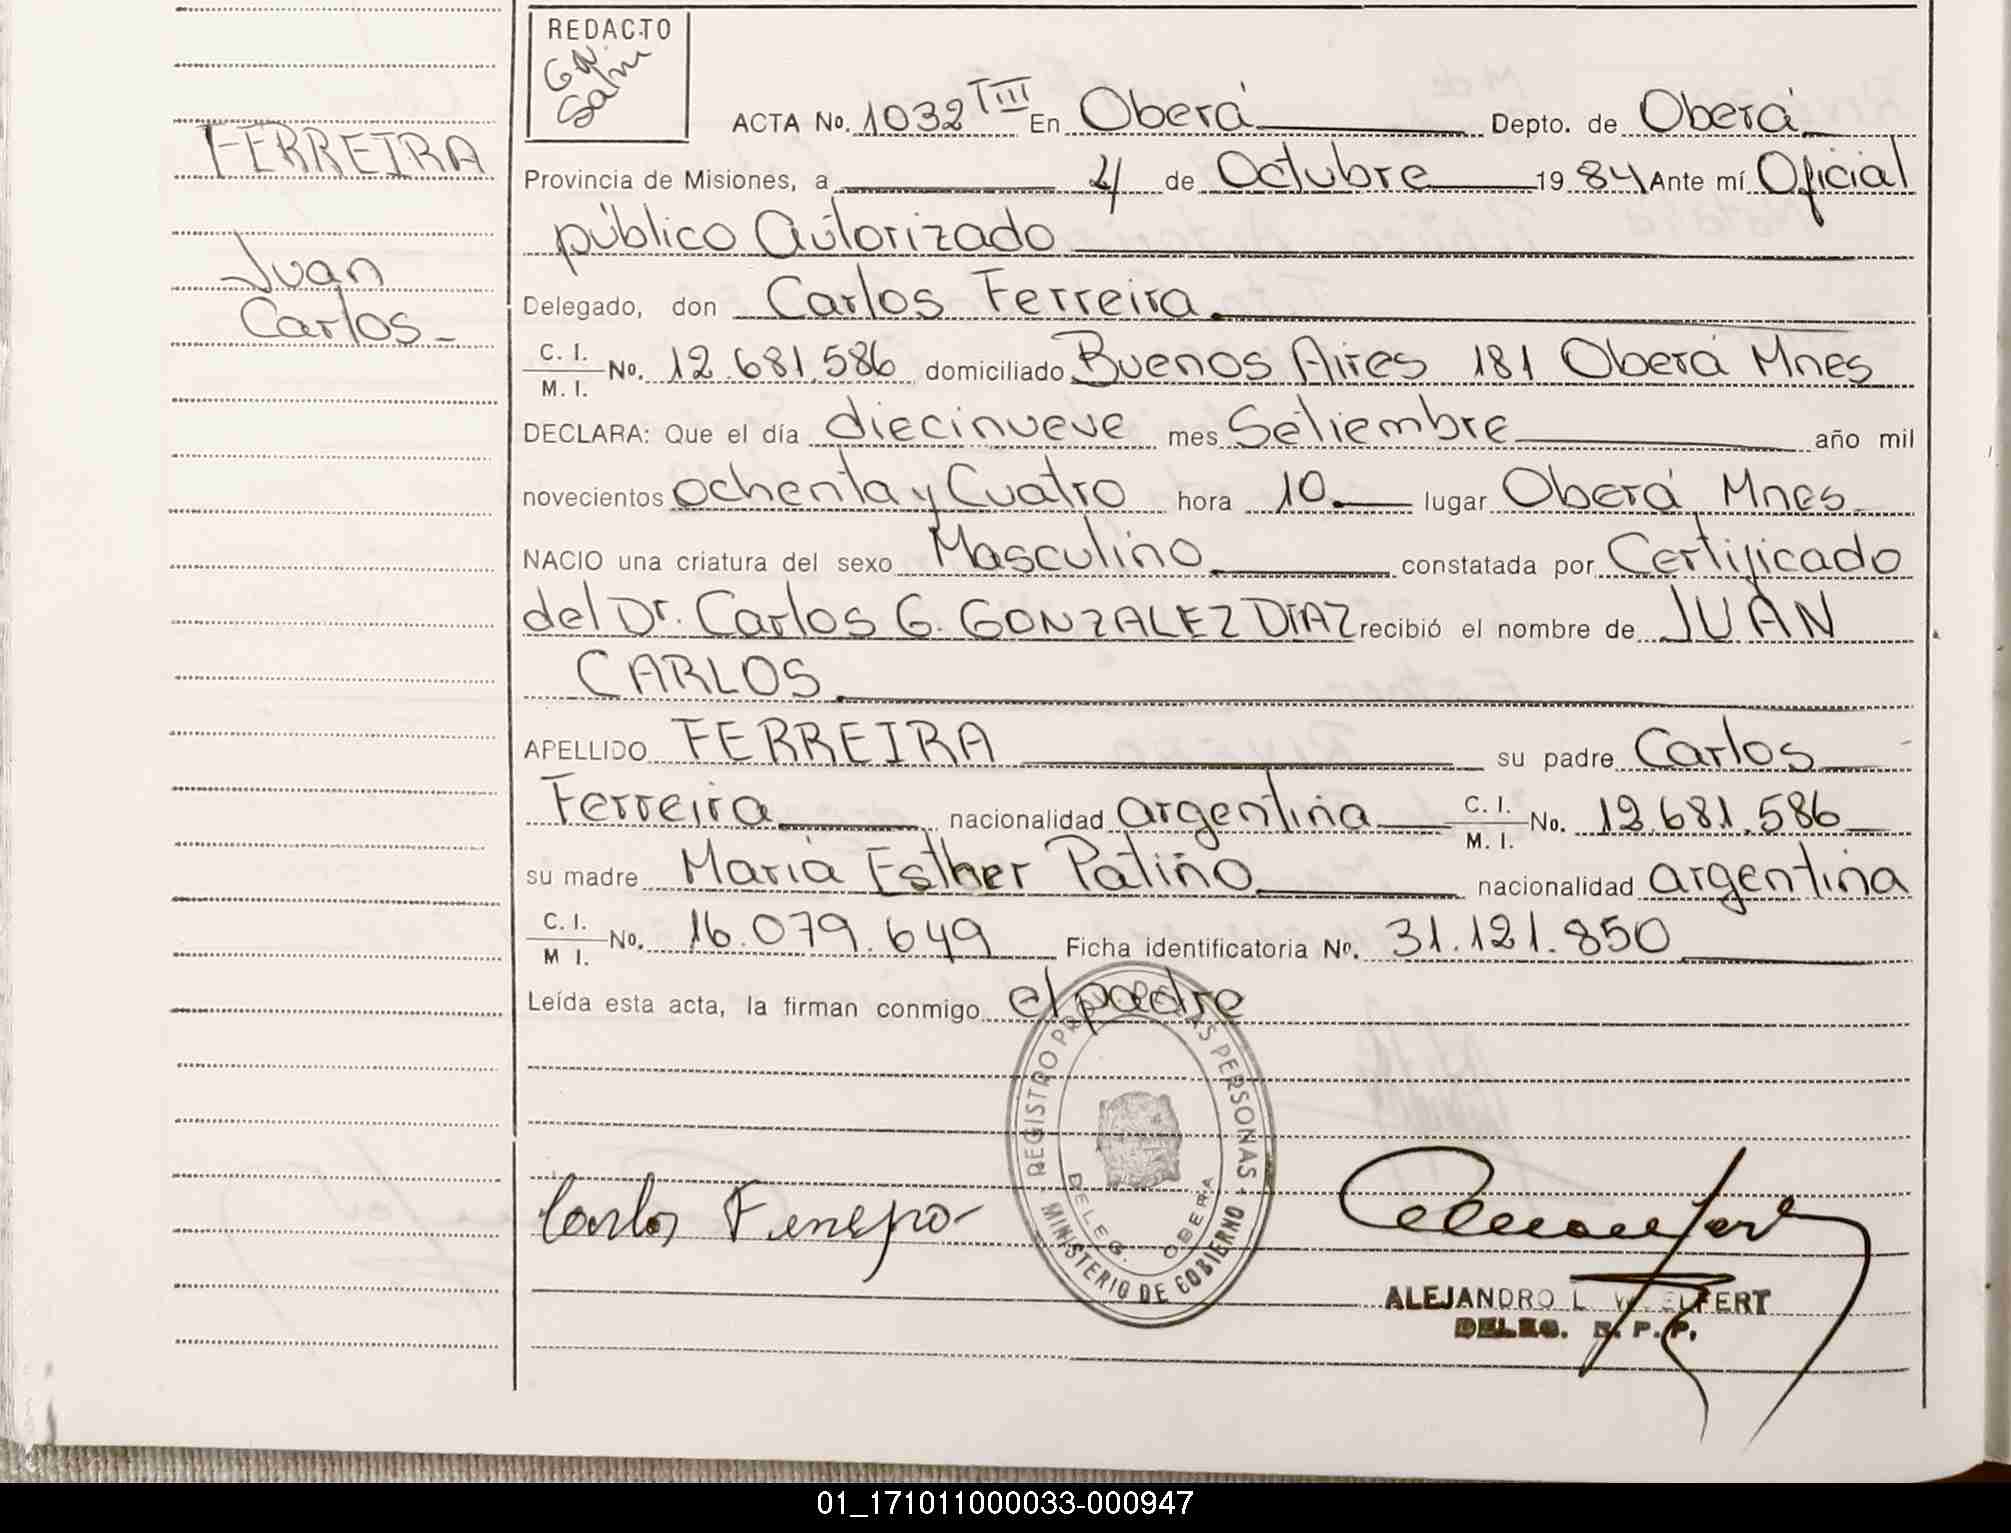 REDACTO
FERREIRA
Juan
Carlos -
ACTA No. 1032 TIII En Oberá Depto. de Oberá
Provincia de Misiones, a 4 de Octubre 1984 Ante mí Oficial
público Autorizado
Delegado, don Carlos Ferreira
C. I. / M. I. No. 12.681.586 domiciliado Buenos Aires 181 Oberá Mnes
DECLARA: Que el día diecinueve mes Setiembre año mil
novecientos ochenta y Cuatro hora 10 lugar Oberá Mnes
NACIO una criatura del sexo Masculino constatada por Certificado
del Dr. Carlos G. GONZALEZ DIAZ recibió el nombre de JUAN
CARLOS
APELLIDO FERREIRA su padre Carlos
Ferreira nacionalidad argentina C. I. / M. I. No. 12.681.586
su madre María Esther Patiño nacionalidad argentina
C. I. / M I. No. 16.079.649 Ficha identificatoria No. 31.121.850
Leída esta acta, la firman conmigo el padre
REGISTRO PROV. DE LAS PERSONAS
DELEG. OBERA
MINISTERIO DE GOBIERNO
Carlos
ALEJANDRO L.
DELEG. R. P. P.
01_171011000033-000947